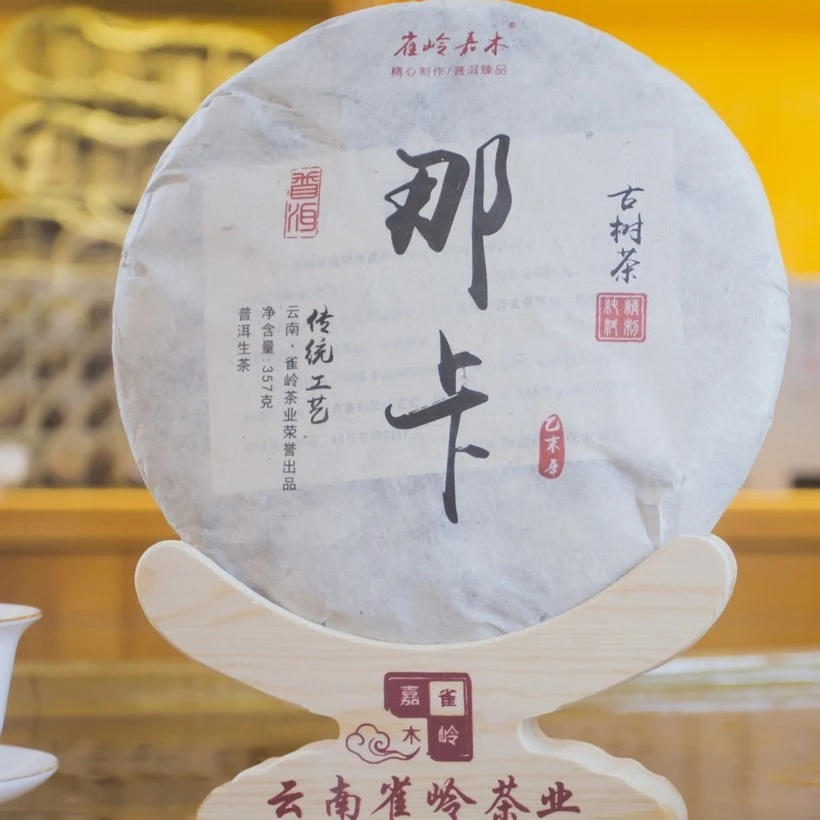 雀岭嘉木®
精心制作/普洱臻品
古树茶
那卡
乙未年
普洱
传统工艺
云南·雀岭茶业荣誉出品
净含量:357克
普洱生茶
雀岭
嘉木
云南雀岭茶业